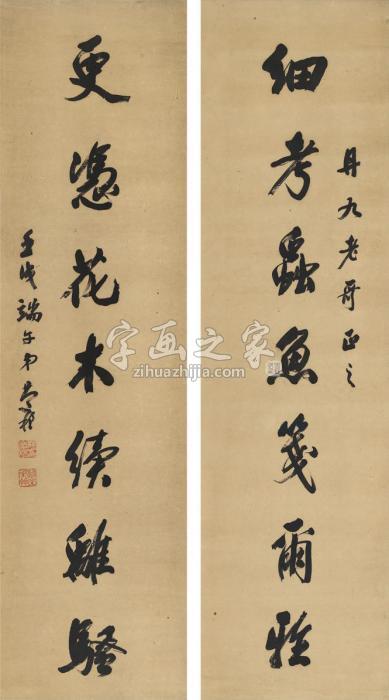 丹九老哥正之
细考虫鱼笺尔雅
更憑花木續離騷
壬戌端午弟
字画之家
zihuazhijia.com